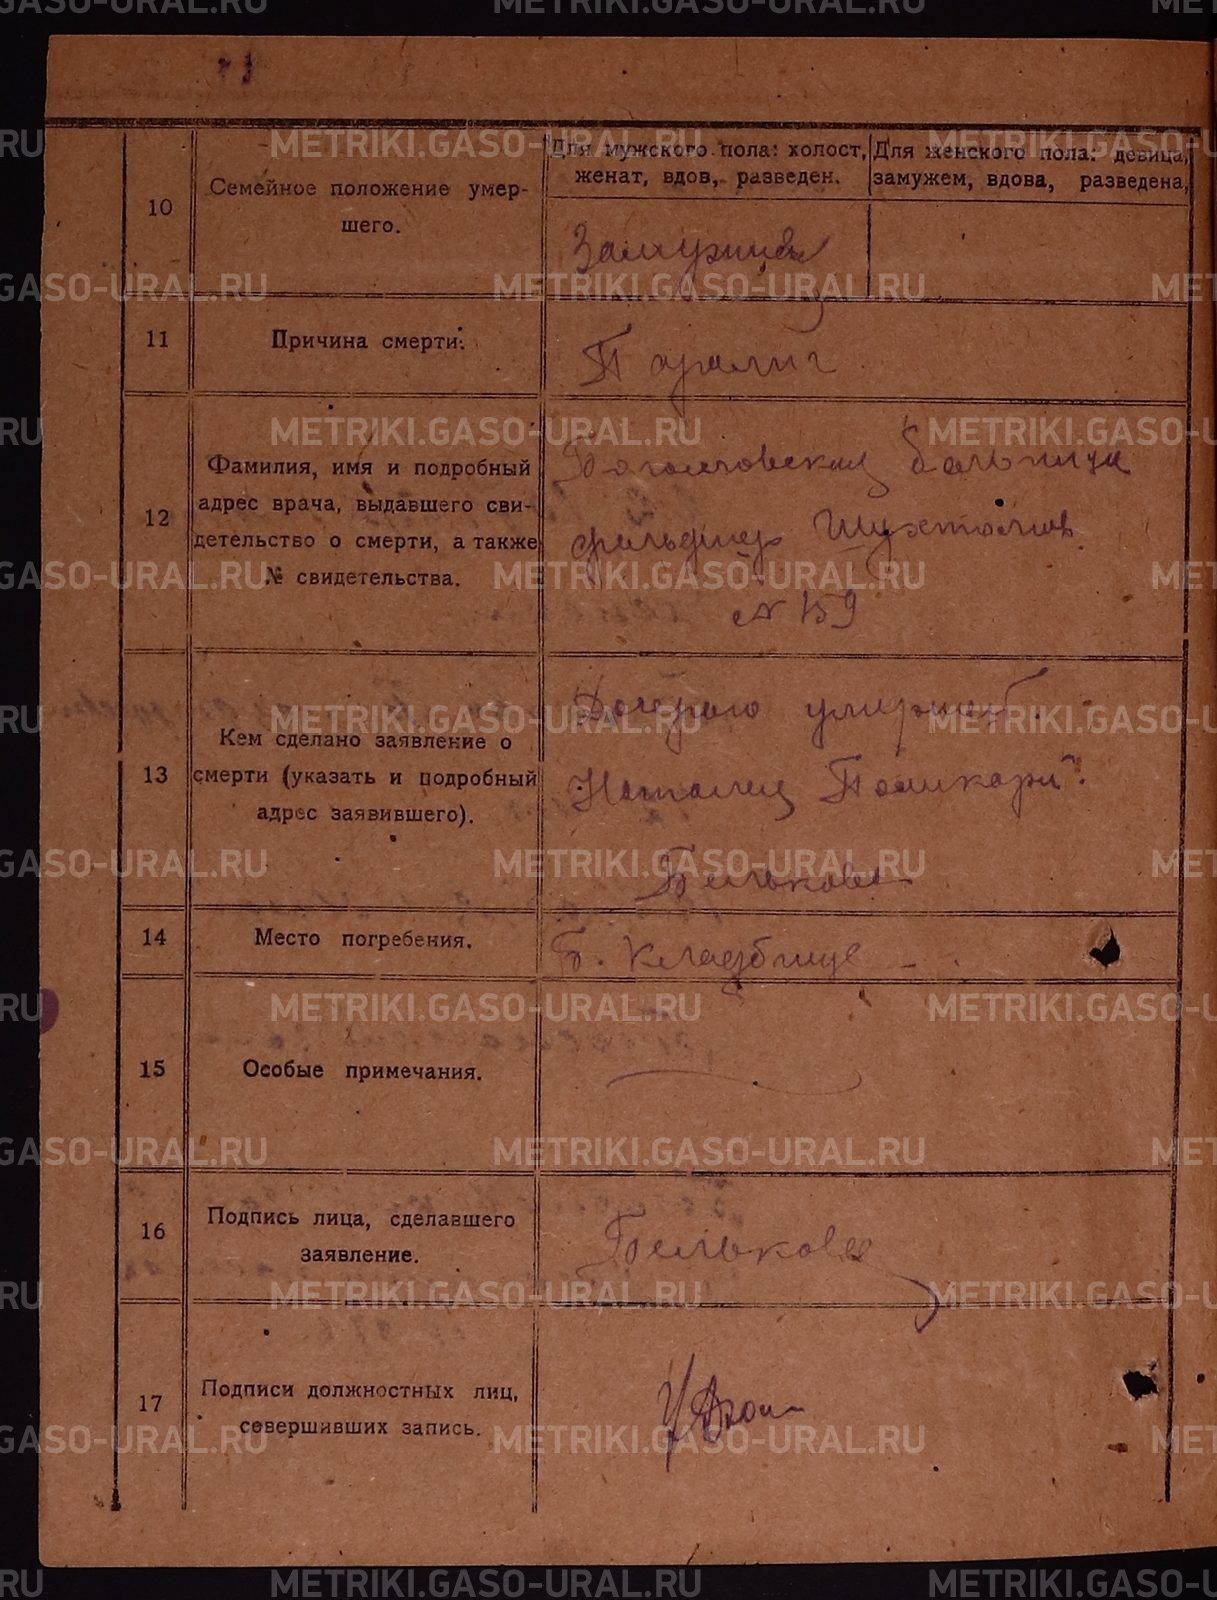 10
Семейное положение умер-
шего.
Для мужского пола: холост,
женат, вдов, разведен.
Для женского пола: девица,
замужем, вдова, разведена,
Замужняя
11
Причина смерти.
Паралич
12
Фамилия, имя и подробный
адрес врача, выдавшего сви-
детельство о смерти, а также
№ свидетельства.
больница
фельдшер
№ 159
13
Кем сделано заявление о
смерти (указать и подробный
адрес заявившего).
Дочерью умершей.
Наталия Поликарп.
Белькова
14
Место погребения.
Б. Кладбище
15
Особые примечания.
16
Подпись лица, сделавшего
заявление.
Белькова
17
Подписи должностных лиц,
совершивших запись.
METRIKI.GASO-URAL.RU